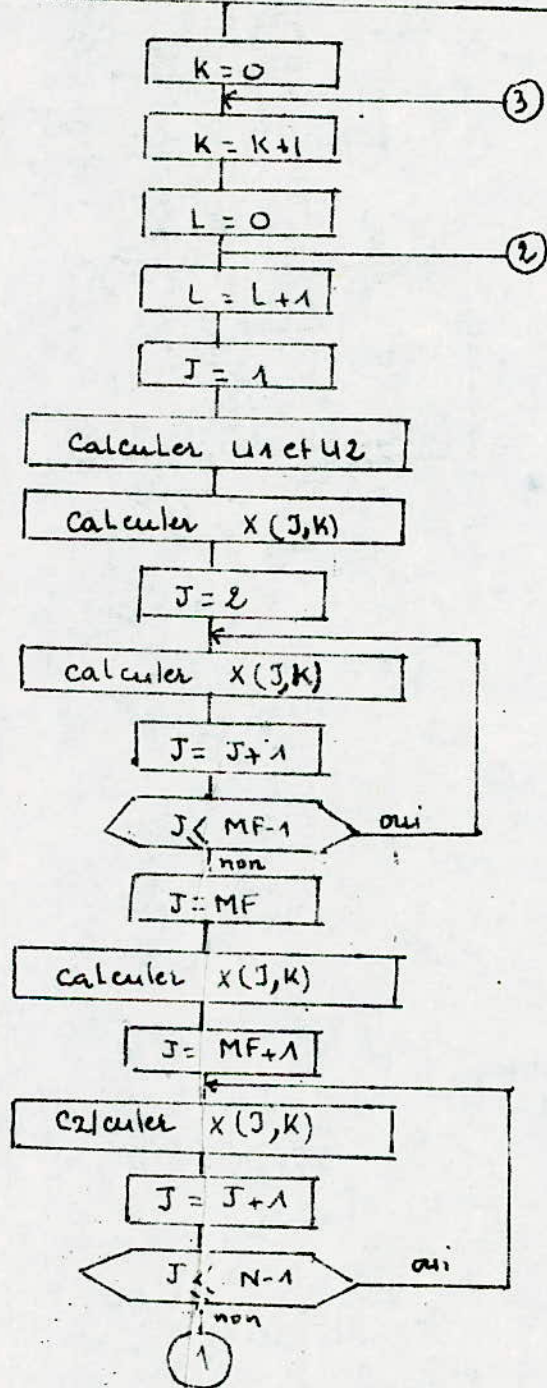 K = 0
3
K = K+1
L = 0
2
L = L+1
J = 1
Calculer U1 et U2
Calculer X(J,K)
J = 2
Calculer X(J,K)
J = J+1
J ≤ MF-1 oui
non
J = MF
Calculer X(J,K)
J = MF+1
Calculer X(J,K)
J = J+1
J ≤ N-1 oui
non
1